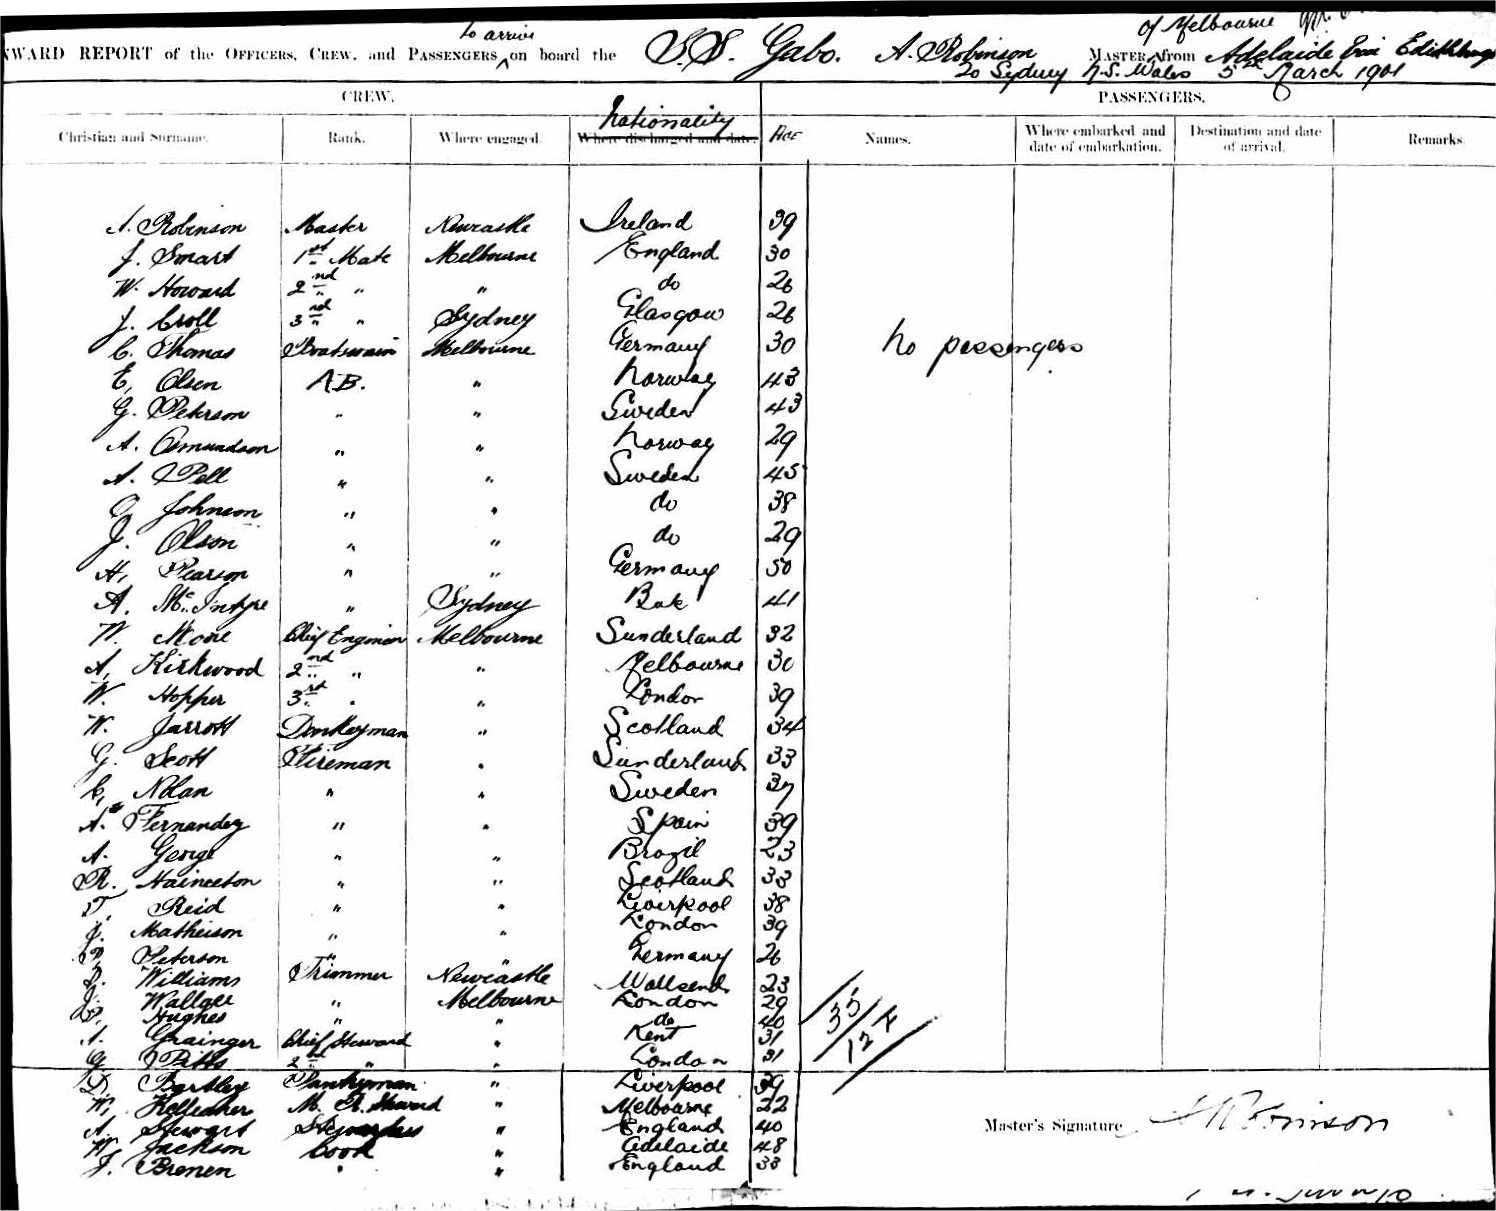 to arrive of Melbourne
NWARD REPORT of the OFFICERS, CREW, and PASSENGERS on board the S.S. Gabo. A. Robinson MASTER, from Adelaide via Edithburg
To Sydney N.S. Wales 5th March 1901
CREW. PASSENGERS.
Christian and Surname. Rank. Where engaged. Nationality Where discharged and date. Age Names. Where embarked and date of embarkation. Destination and date of arrival. Remarks
A. Robinson Master Newcastle Ireland 39
J. Smart 1st Mate Melbourne England 30
W. Howard 2nd " " do 26
J. Croll 3rd " Sydney Glasgow 26
C. Thomas Boatswain Melbourne Germany 30 No passengers
E. Olsen A.B. " Norway 43
G. Peterson " " Sweden 43
A. Asmundson " " Norway 29
A. Pell " " Sweden 45
Johnson " " do 38
J. Olson " " do 29
H. Pearson " " Germany 50
A. McIntyre " Sydney 41
W. Moore Chief Engineer Melbourne Sunderland 32
A. Kirkwood 2nd " " Melbourne 30
W. Hopper 3rd " " London 39
W. Jarrott Donkeyman " Scotland 34
G. Scott Fireman " Sunderland 33
C. Nolan " " Sweden 37
A. Fernandez " " Spain 39
A. George " " Brazil 23
R. " " Scotland 33
T. Reid " " Liverpool 38
J. Matheison " " London 39
Peterson " " Germany 26
Williams Trimmer Newcastle Wallsend 23
J. Wallace " Melbourne London 29
Hughes " " do 40
A. Grainger Chief Steward " Kent 31
G. Pitts 2nd " " London 31
D. Bartley Pantryman " Liverpool 39
W. Kelleaher M. R. Steward " Melbourne 22
A. Stewart Stewardess " England 40
W. Jackson Cook " Adelaide 48
J. Brenen " " England 33
35/127
Master's Signature A Robinson